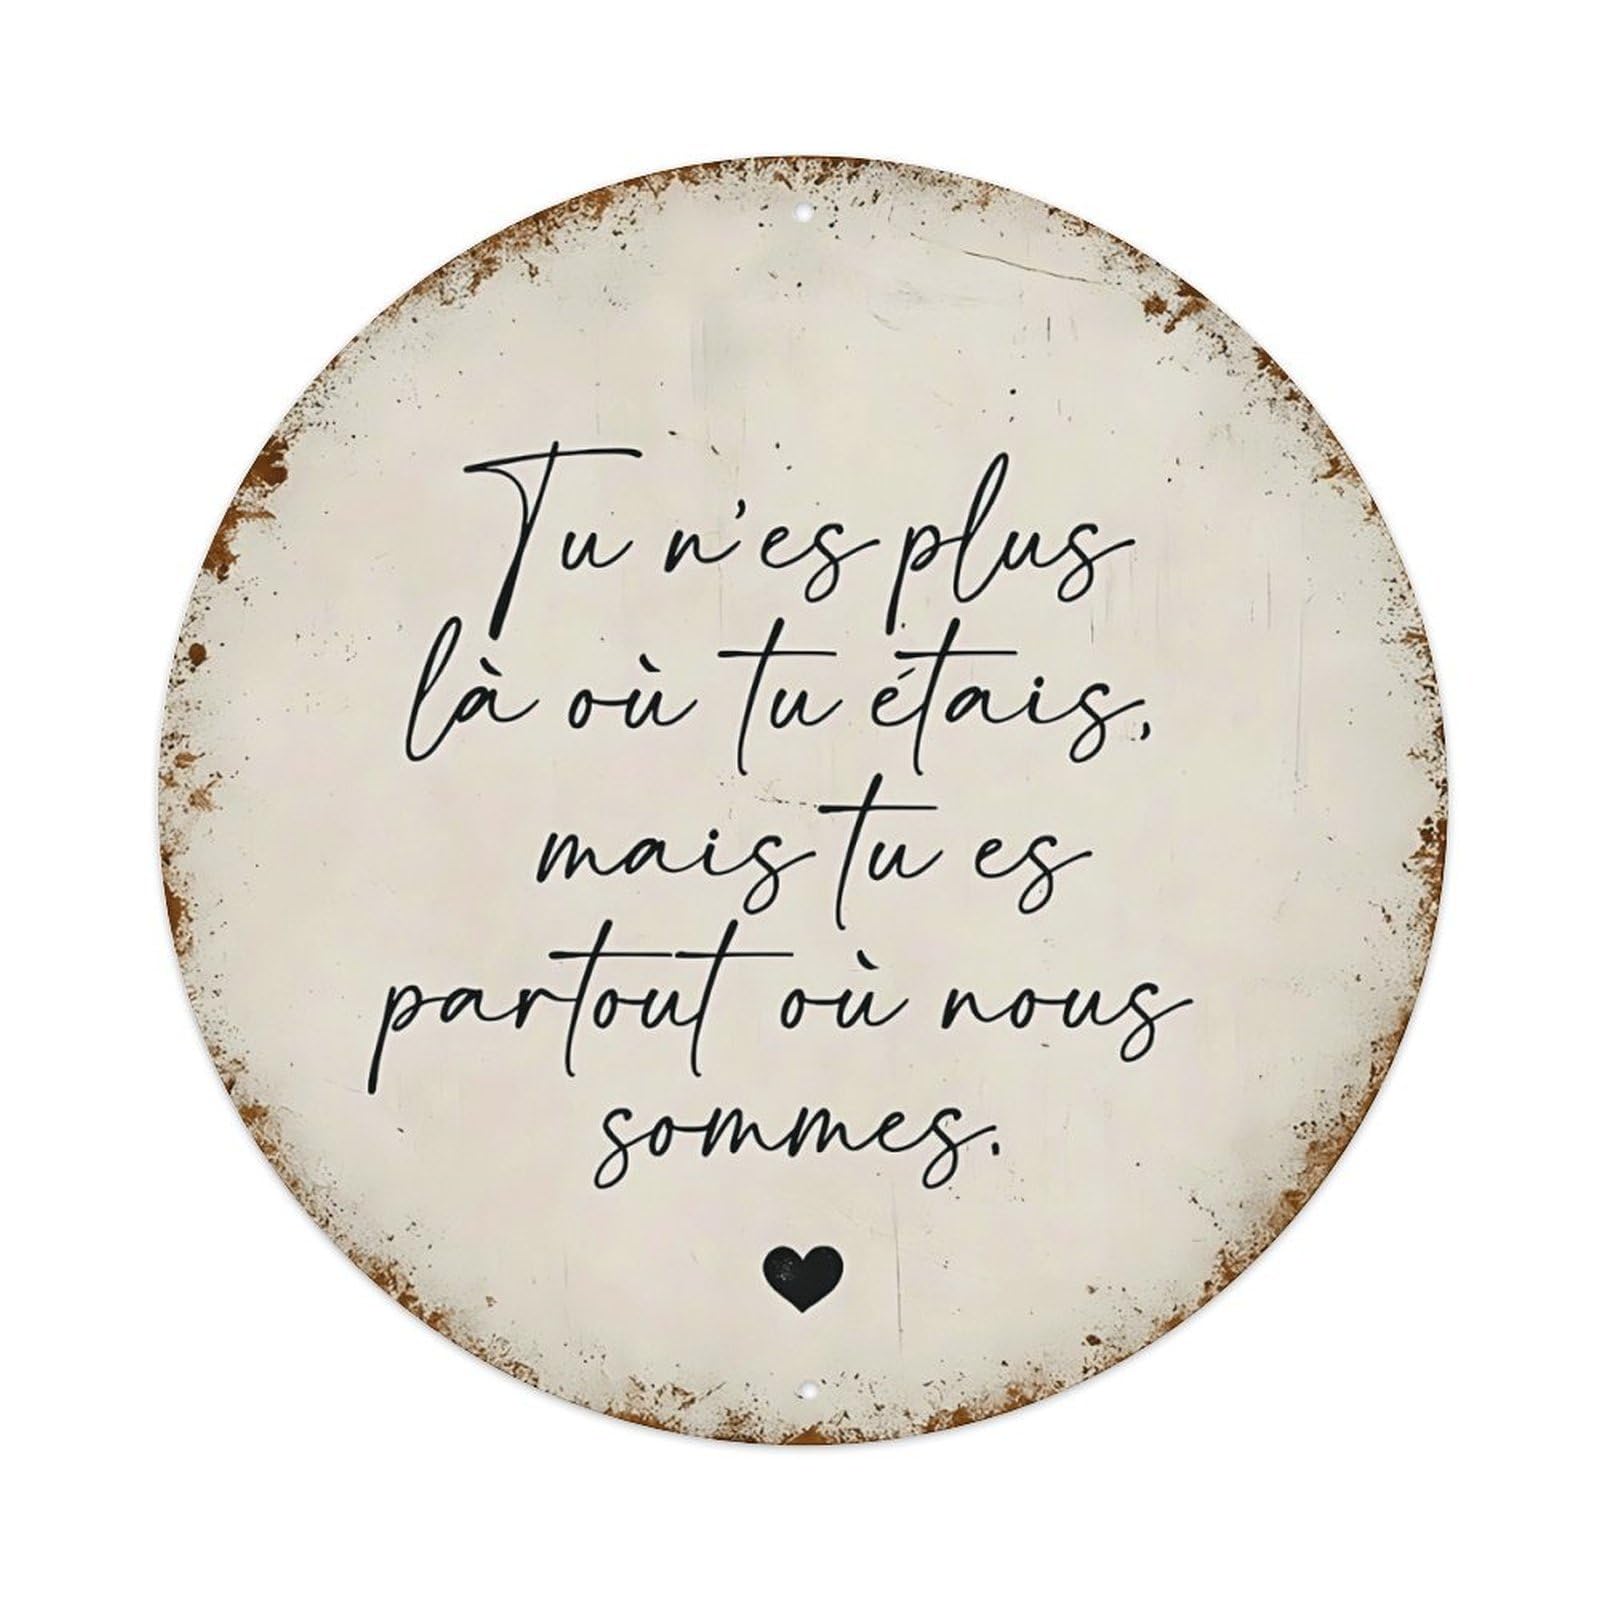 Tu n'es plus
là où tu étais,
mais tu es
partout où nous
sommes.